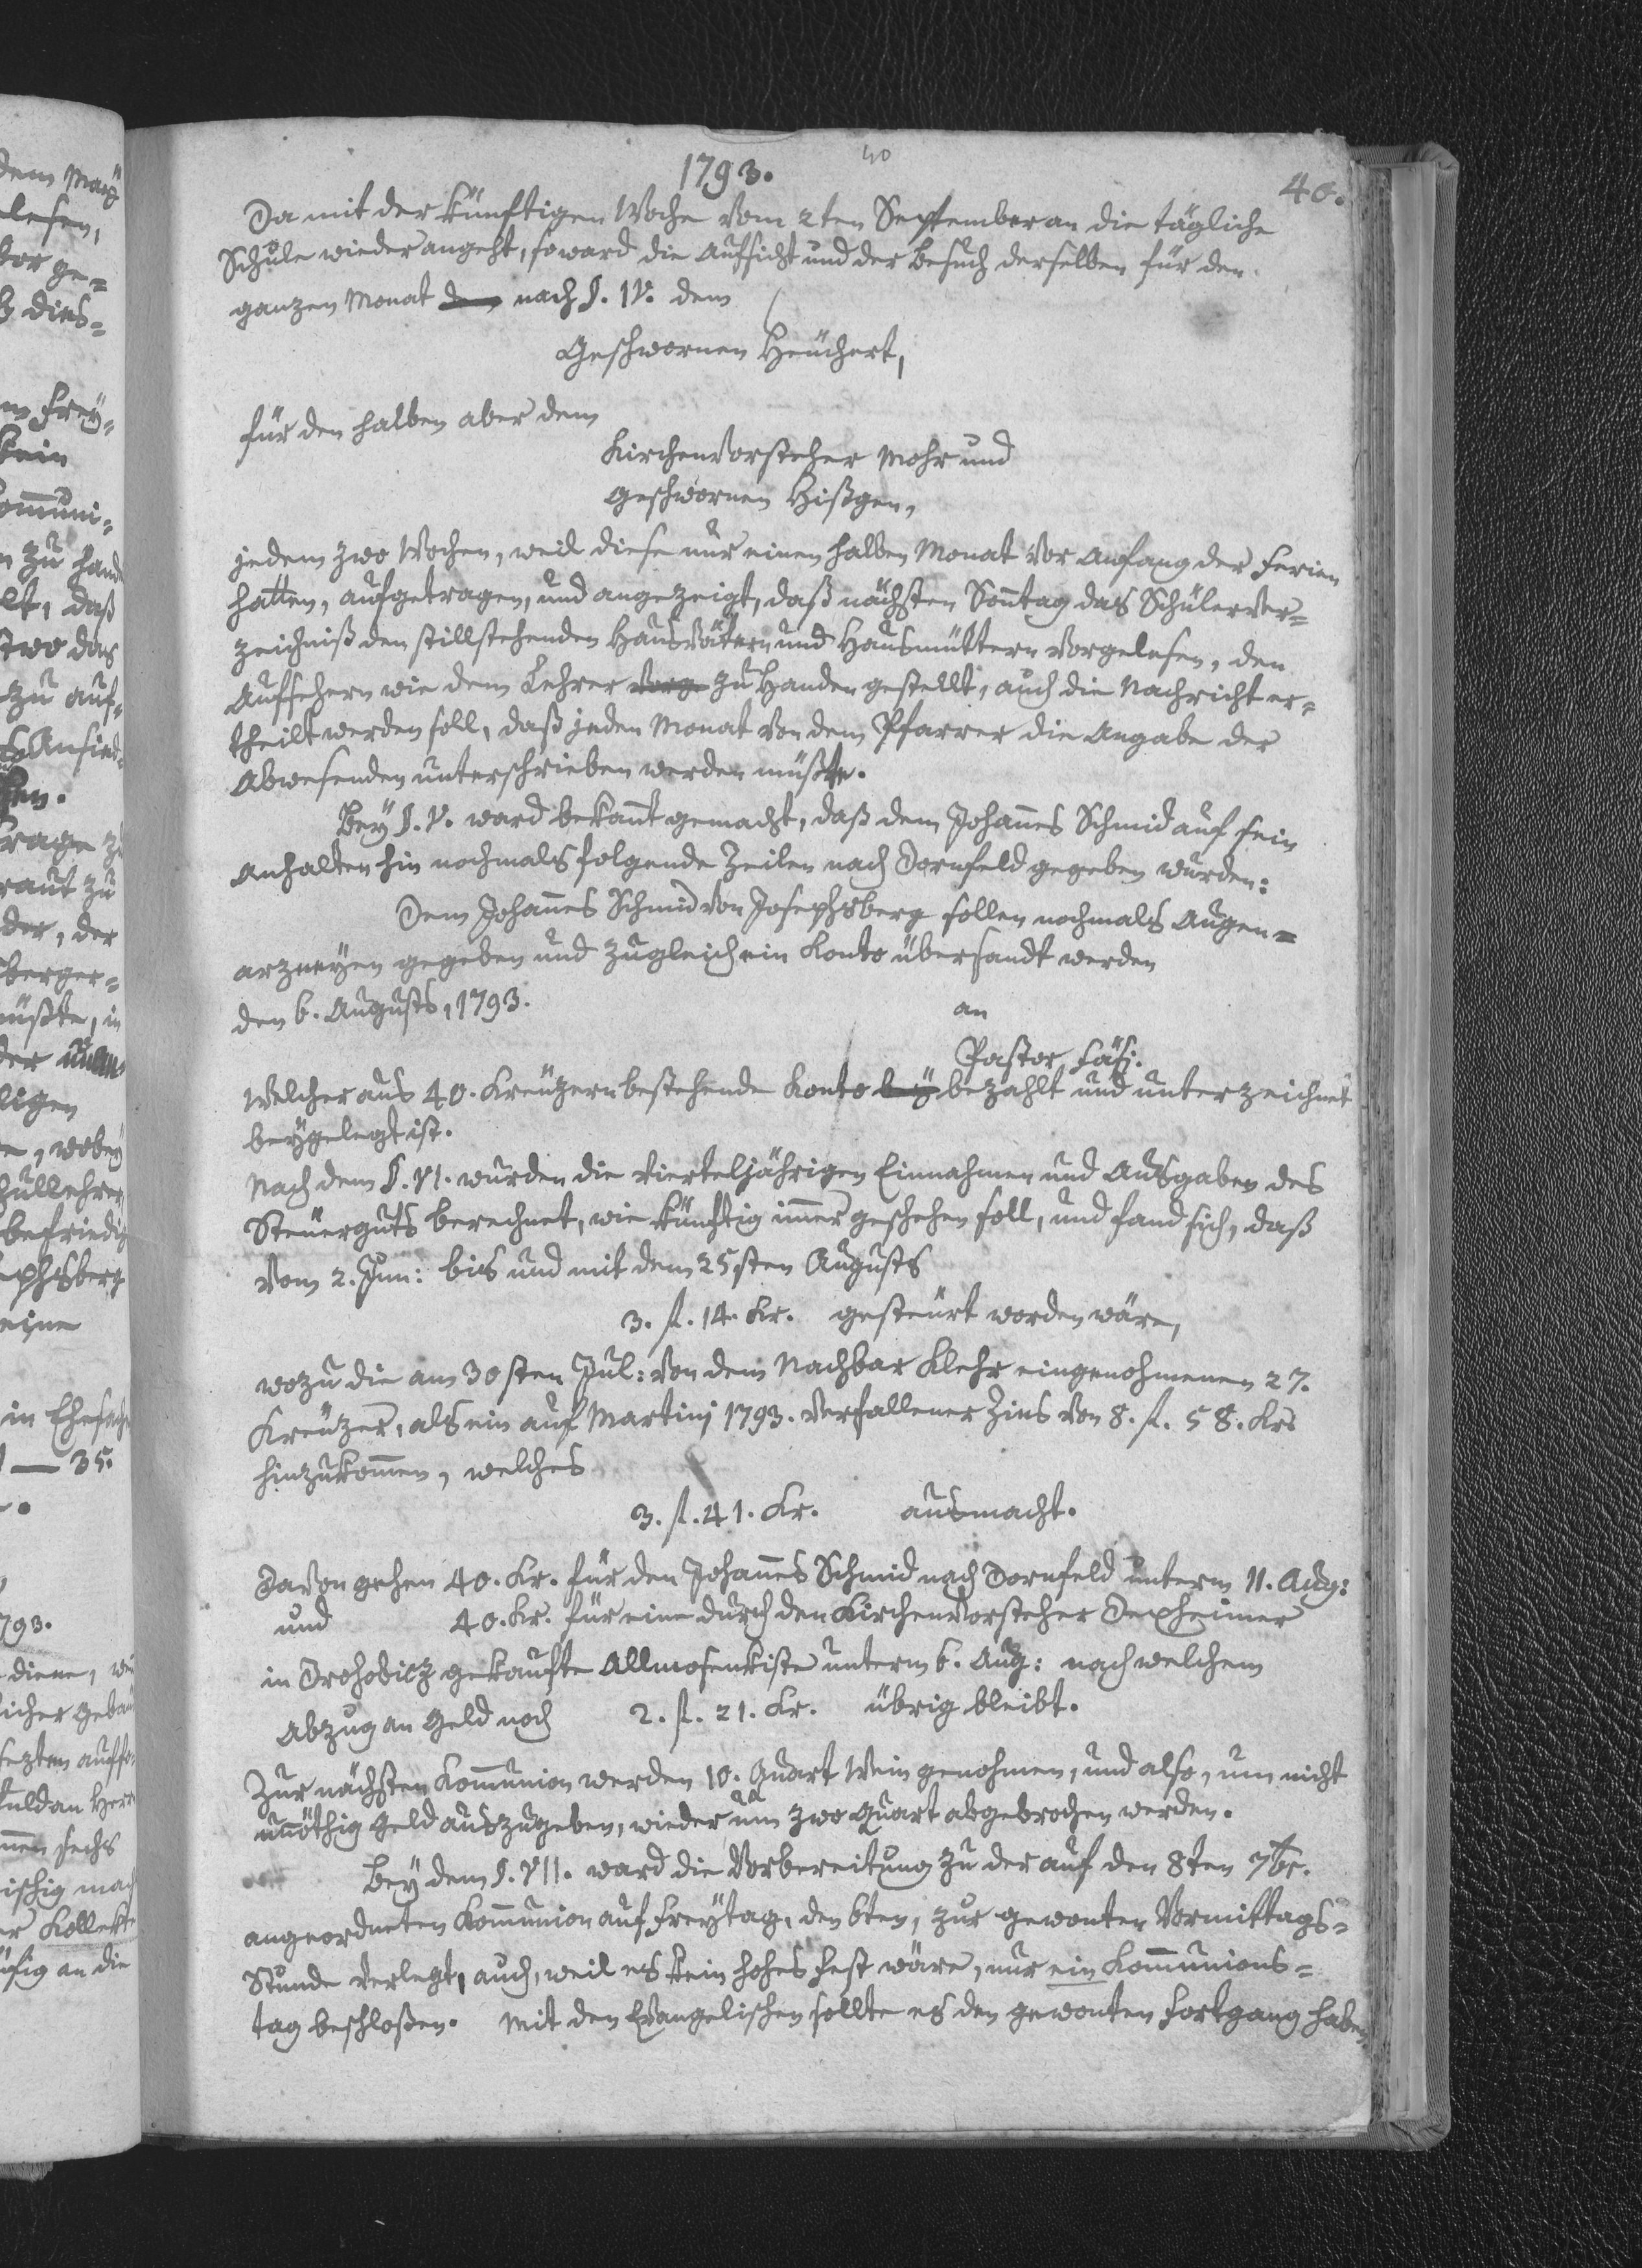 1793.
40
40.
Da mit der künftigen Woche vom 2ten September an die tägliche
Schule wieder angeht, so ward die Aufsicht und der Besuch derselben für den
ganzen Monat nach §. IV. dem
Geschwornen Heuchert,
für den halben aber dem
Kirchenvorsteher Mohr und
Geschwornen Hißgen,
jedem zwo Wochen, weil diese nur einen halben Monat vor Anfang der Ferien
hatten, aufgetragen, und angezeigt, daß nächsten Sontag das Schülerver=
zeichniß den stillstehenden Hausvätern und Hausmüttern vorgelesen, den
Aufsehern wie dem Lehrer zu Handen gestellt, auch die Nachricht er=
theilt werden soll, daß jeden Monat von dem Pfarrer die Angabe der
Abwesenden unterschrieben werden müßte.
Bey §. V. ward bekant gemacht, daß dem Johanes Schmid auf sein
Anhalten hin nochmals folgende Zeilen nach Dornfeld gegeben wurden:
Dem Johanes Schmid von Josephsberg sollen nochmals Augen=
arzneyen gegeben und zugleich ein Konto übersandt werden
den 6. Augusts, 1793.
an
Pastor Fäsi.
Welcher aus 40. Kreuzern bestehende Konto bezahlt und unterzeichnet
beygelegt ist.
Nach dem §. VI. wurden die vierteljährigen Einnahmen und Ausgaben des
Steuerguts berechnet, wie künftig imer geschehen soll, und fand sich, daß
vom 2. Jun: bis und mit dem 25sten Augusts
3. fl. 14. Kr. gesteurt worden wäre,
wozu die am 30sten Jul: von dem Nachbar Klehr eingenohmenen 27.
Kreuzer, als ein auf Martini 1793. verfallener Zins von 8. fl. 58. Kr.
hinzukomen, welches
3. fl. 41. Kr. ausmacht.
Davon gehen 40. Kr. für den Johanes Schmid nach Dornfeld unterm 11. Aug:
und 40. Kr. für eine durch den Kirchenvorsteher Dexheimer
in Drohobicz gekaufte Allmosenkiste unterm 6. Aug: nach welchem
Abzug an Geld noch 2. fl. 21. Kr. übrig bleibt.
Zur nächsten Komunion werden 10. Quart Wein genohmen, und also, um nicht
unöthig Geld auszugeben, wieder um zwo Quart abgebrochen werden.
Bey dem §. VII. ward die Vorbereitung zu der auf den 8ten 7br.
angeordneten Komunion auf Freytag, den 6ten, zur gewonten Vormittags=
Stunde verlegt, auch, weil es kein hohes Fest wäre, nur ein Komunions=
tag beschloßen. Mit den Evangelischen sollte es den gewonten Fortgang haben,